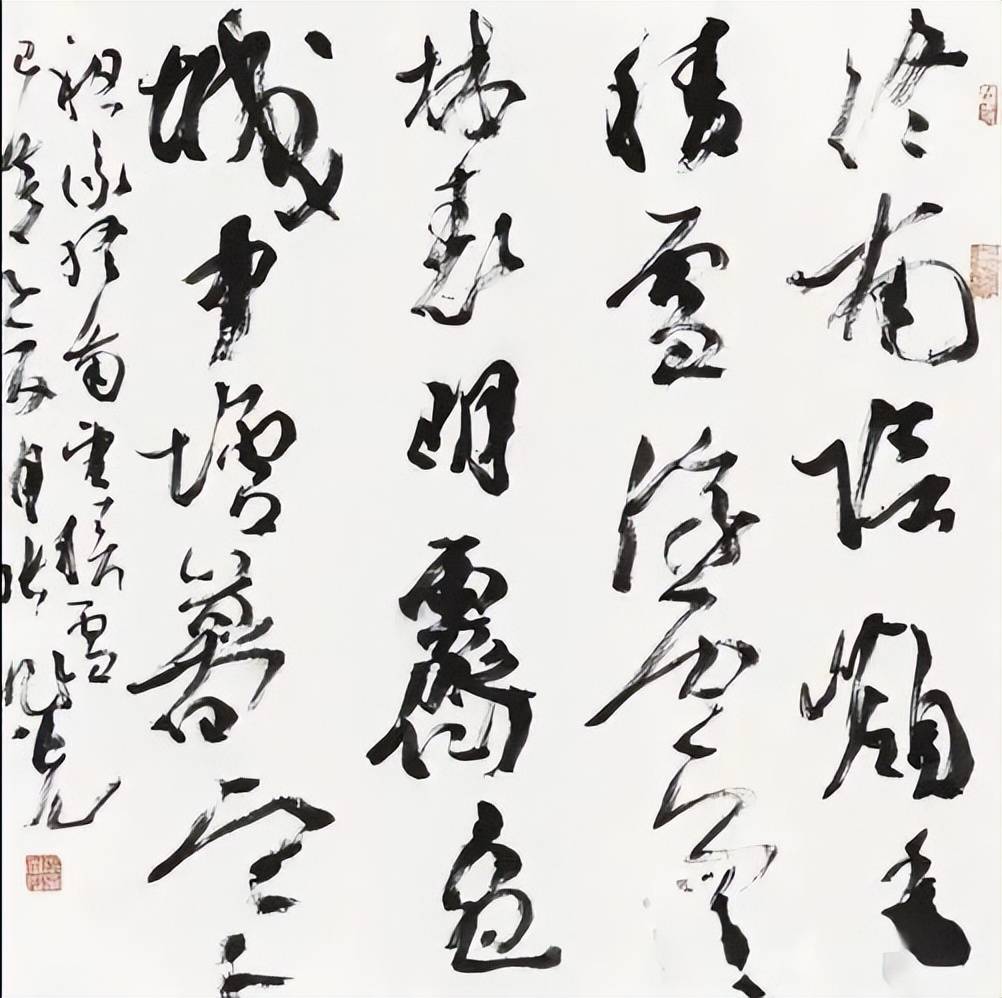 終南陰嶺秀
積雪浮雲端
林表明霽色
城中增暮寒
祖詠終南望積雪
己亥 張旭光